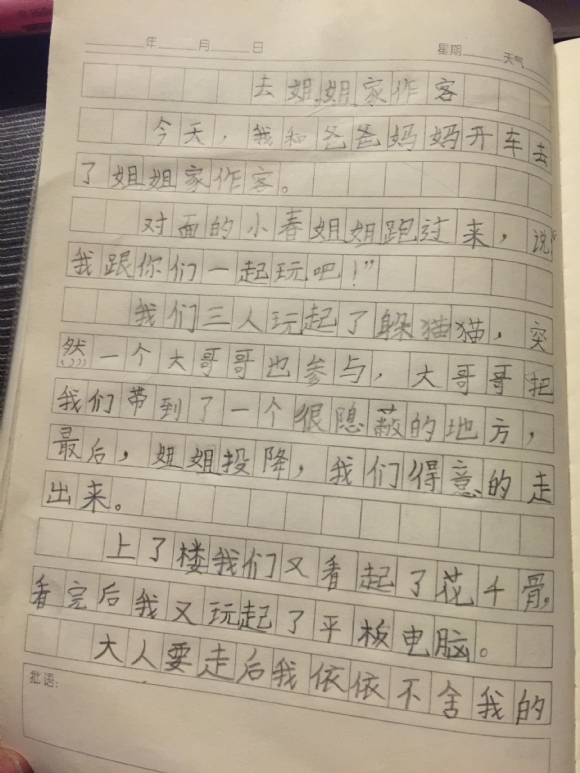 年 月 日 星期 天气
去姐姐家作客
今天，我和爸爸妈妈开车去
了姐姐家作客。
对面的小春姐姐跑过来，说“
我跟你们一起玩吧！”
我们三人玩起了躲猫猫，突
然一个大哥哥也参与，大哥哥把
我们带到了一个很隐蔽的地方，
最后，姐姐投降，我们得意的走
出来。
上了楼我们又看起了花千骨。
看完后我又玩起了平板电脑。
大人要走后我依依不舍我的
批语：